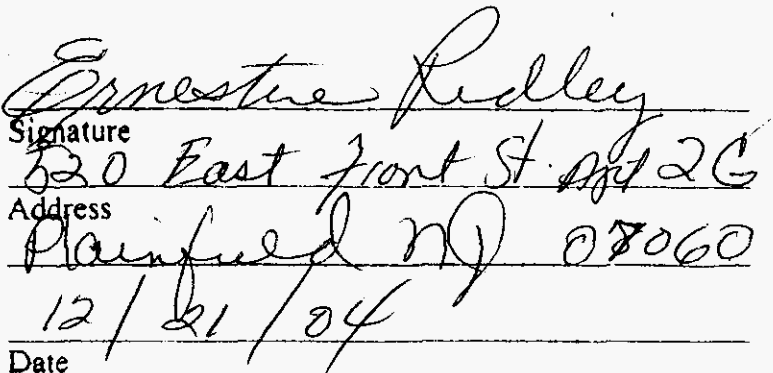 Ernestine Ridley
Signature
520 East Front St. Apt 2G
Address
Plainfield NJ 07060
12/21/04
Date